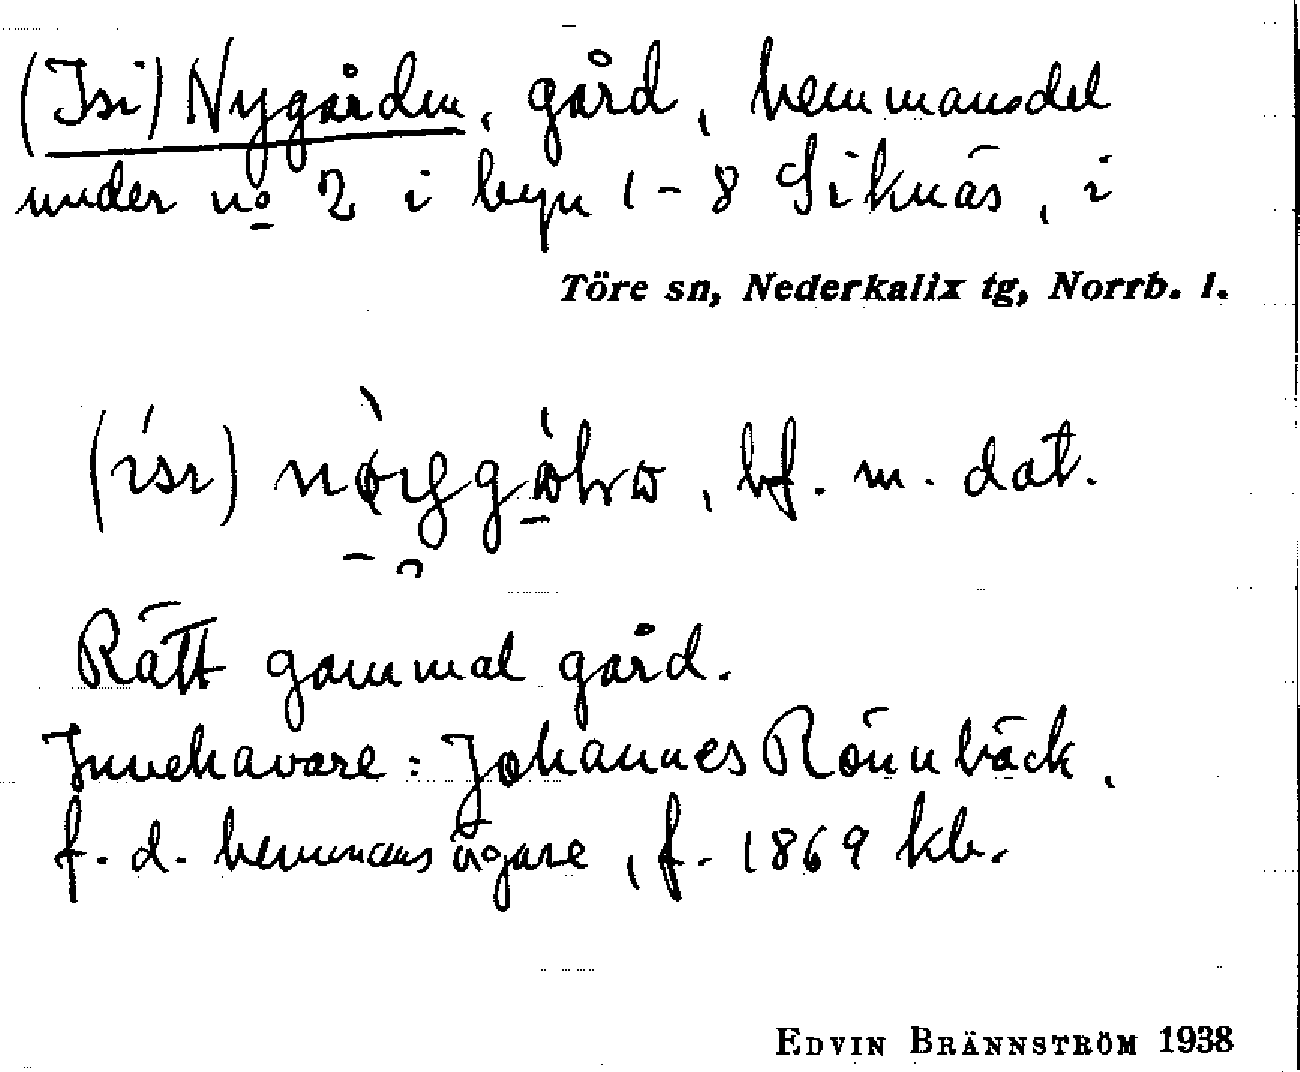 (Isi) Nygården, gård, hemmansdel
under nº 2 i byn 1-8 Siknäs, i
Töre sn, Nederkalix tg, Norrb. l.
bf. m. dat.
Rätt gammal gård.
Innehavare: Johannes Rönnbäck,
f.d. hemmansägare, f. 1869 kb.
EDVIN BRÄNNSTRÖM 1938